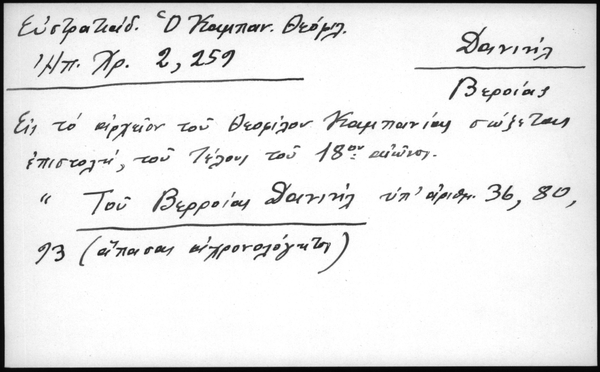 Εὐστρατιάδ. Ὁ Καμπαν. Θεόφιλ.
Ἠπ. Χρ. 2, 259
Δανιήλ
Βεροίας
Εἰς τό ἀρχεῖον τοῦ Θεοφίλου Καμπανίας σώζεται
ἐπιστολή, τοῦ τέλους τοῦ 18ου αἰῶνος.
" Τοῦ Βερροίας Δανιήλ ὑπ' ἀριθμ. 36, 80,
93 (ἅπασαι ἀχρονολόγητοι)